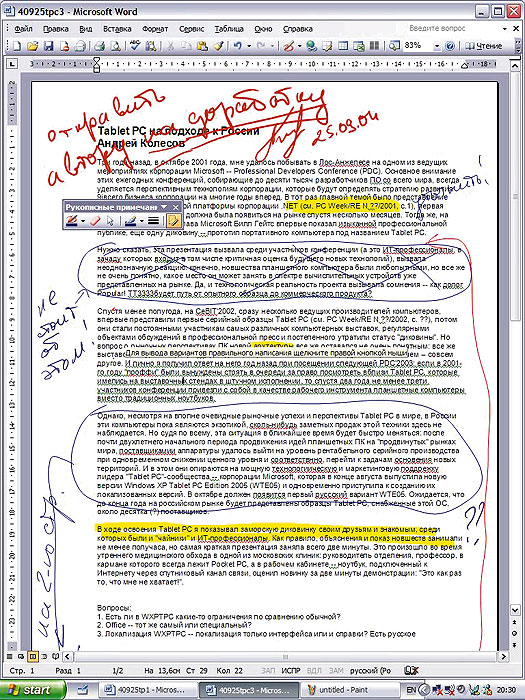 40925tpc3 - Microsoft Word
Файл Правка Вид Вставка Формат Сервис Таблица Окно Справка
Введите вопрос
83% Чтение
отправить
автору на доработку
25.09.04
Tablet PC на подходе к России
Андрей Колесов
Три года назад, в октябре 2001 года, мне удалось побывать в Лос-Анжелесе на одном из ведущих
мероприятий корпорации Microsoft -- Professional Developers Conference (PDC). Основное внимание
этих ежегодных конференций, собирающие до десяти тысяч разработчиков ПО со всего мира, всегда
уделяется перспективным технологиям корпорации, которые будут определять стратегию развития
всего бизнеса корпорации на многие годы вперед. В тот раз главной темой было представление
платформы корпорации .NET (см. PC Week/RE N_??/2001, с.1), первая
Рукописные примечания
должна была появиться на рынке спустя несколько месяцев. Тогда же, на
Microsoft Билл Гейтс впервые показал изысканной профессиональной
публике, еще одну диковину прототип портативного компьютера под названием Tablet PC.
Нужно сказать, эта презентация вызвала среди участников конференции (а это ИТ-профессионалы, в
задачу которых входит в том числе критичная оценка будущего новых технологий), вызвала
неоднозначную реакцию. конечно, новшества планшетного компьютера были любопытными, но все же
не очень понятно, какое место он может занять в спектре вычислительных устройств уже
представленных на рынке. Да, и технологическая реальность проекта вызывала сомнения -- как долог
Popular! ТТ3333будет путь от опытного образца до коммерческого продукта?
не
стоит
об
этом
Спустя менее полугода, на CeBIT'2002, сразу несколько ведущих производителей компьютеров,
впервые представили первые серийный образцы Tablet PC (см. PC Week/RE N ??/2002, с. ??), потом
они стали постоянными участникам самых различных компьютерных выставок, регулярными
объектами обсуждений в профессиональной пресс и постепенного утратили статус "диковины". Но
Для вывода вариантов правильного написания щелкните правой кнопкой мыши
другое. И лично я получил ответ на него год назад при посещении следующей PDC'2003: если в 2001-
го году "проффи" были вынуждены стоять в очереди за право посмотреть вблизи Tablet PC, которые
имелись на выставочных стендах в штучном исполнении, то спустя два года не менее трети
участников конференции привезли с собой в качестве рабочего инструмента планшетные компьютеры
вместо традиционных ноутбуков.
Однако, несмотря на вполне очевидные рыночные успехи и перспективы Tablet PC в мире, в России
эти компьютеры пока являются экзотикой, сколь-нибудь заметных продаж этой техники здесь не
наблюдается. Но судя по всему, эта ситуация в ближайшее время будет быстро меняться: после
почти двухлетнего начального периода продвижения идей планшетных ПК на "продвинутых" рынках
мира, поставщикамии аппаратуры удалось выйти на уровень рентабельного серийного производства
при одновременном снижении ценного уровня и соответственно, перейти к задачам основания новых
территорий. И в этом они опираются на мощную технологическую и маркетинговую поддержку
лидера "Tablet PC"-сообщества -- корпорации Microsoft, которая в конце августа выпустила новую
версии Windows XP Tablet PC Edition 2005 (WTE05) и одновременно приступила к созданию их
локализованных версий. В октябре должен появится первый русский вариант WTE05. Ожидается, что
до конца года на российском рынке будет представлены образцы Tablet PC, снабженные этой ОС,
около десятка (?) поставщиков.
??
на 2-ю стр.?
В ходе освоения Tablet PC я показывал заморскую диковинку своим друзьям и знакомым, среди
которых были и "чайники" и ИТ-профессионалы. Как правило, объяснения и показ новшеств занимали
не менее получаса, но самая краткая презентация заняла всего две минуты. Это произошло во время
утреннего медицинского обхода в одной из московских клиник: руководитель отделения, профессор, в
кармане которого всегда лежит Pocket PC, а в рабочем кабинете -- ноутбук, подключенный к
Интернету через спутниковый канал связи, оценил новинку за две минуты демонстрации: "Это как раз
то, что мне не хватает!".
Вопросы:
1. Есть ли в WXPTPC какие-то ограничения по сравнению обычной?
2. Office -- тот же самый или специальный?
3. Локализация WXPTPC -- локализация только интерфейса или и справки? Есть русское
Стр. 1 Разд 1 1/2 На 13,6см Ст 29 Кол 22 ЗАП ИСПР ВДЛ ЗАМ русский (Ро
start 40925tp1 - Micros... 40925tpc3 - Micros... untitled - Paint EN 20:30